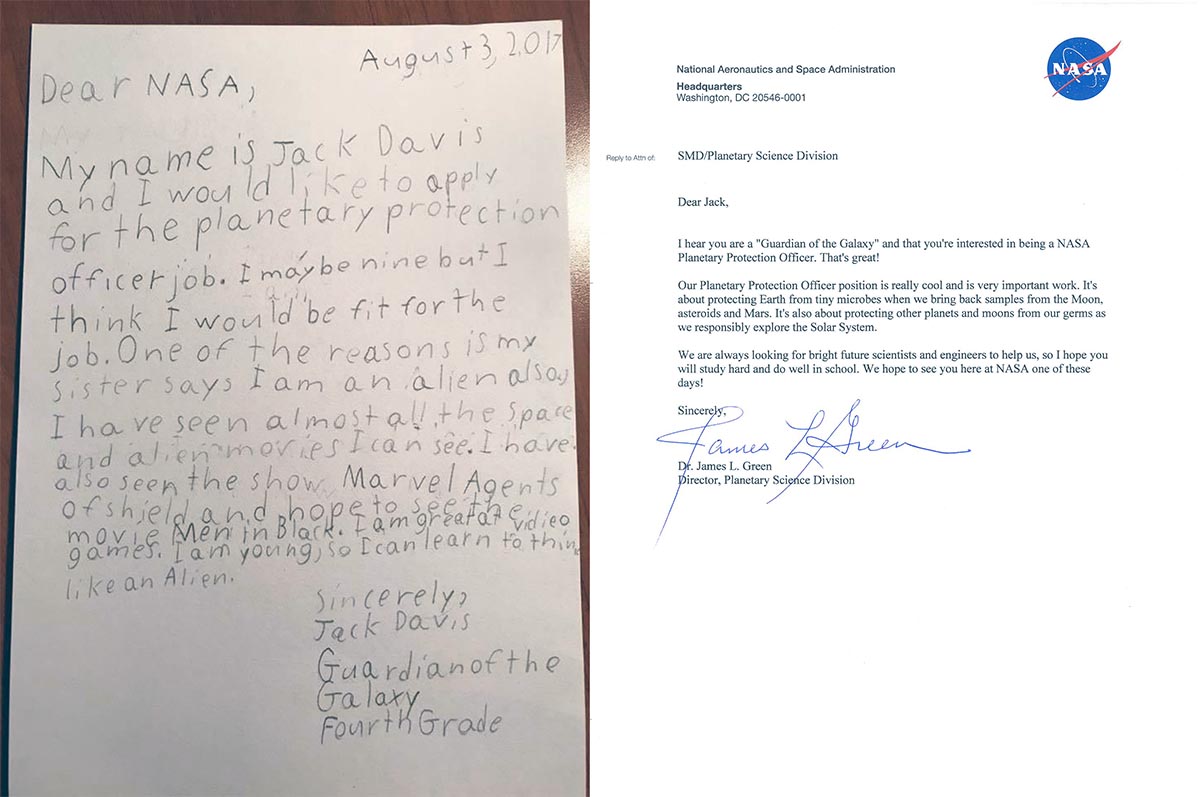 August 3, 2017
Dear NASA,
My name is Jack Davis
and I would like to apply
for the planetary protection
officer job. I may be nine but I
think I would be fit for the
job. One of the reasons is my
sister says I am an alien also,
I have seen almost all the space
and alien movies I can see. I have
also seen the show Marvel Agents
of shield and hope to see the
movie Men in Black. I am great at vidieo
games. I am young, so I can learn to think
like an Alien.
Sincerely,
Jack Davis
Guardian of the
Galaxy
Fourth Grade
National Aeronautics and Space Administration
Headquarters
Washington, DC 20546-0001
NASA
Reply to Attn of: SMD/Planetary Science Division
Dear Jack,
I hear you are a "Guardian of the Galaxy" and that you're interested in being a NASA
Planetary Protection Officer. That's great!
Our Planetary Protection Officer position is really cool and is very important work. It's
about protecting Earth from tiny microbes when we bring back samples from the Moon,
asteroids and Mars. It's also about protecting other planets and moons from our germs as
we responsibly explore the Solar System.
We are always looking for bright future scientists and engineers to help us, so I hope you
will study hard and do well in school. We hope to see you here at NASA one of these
days!
Sincerely,
James L Green
Dr. James L. Green
Director, Planetary Science Division